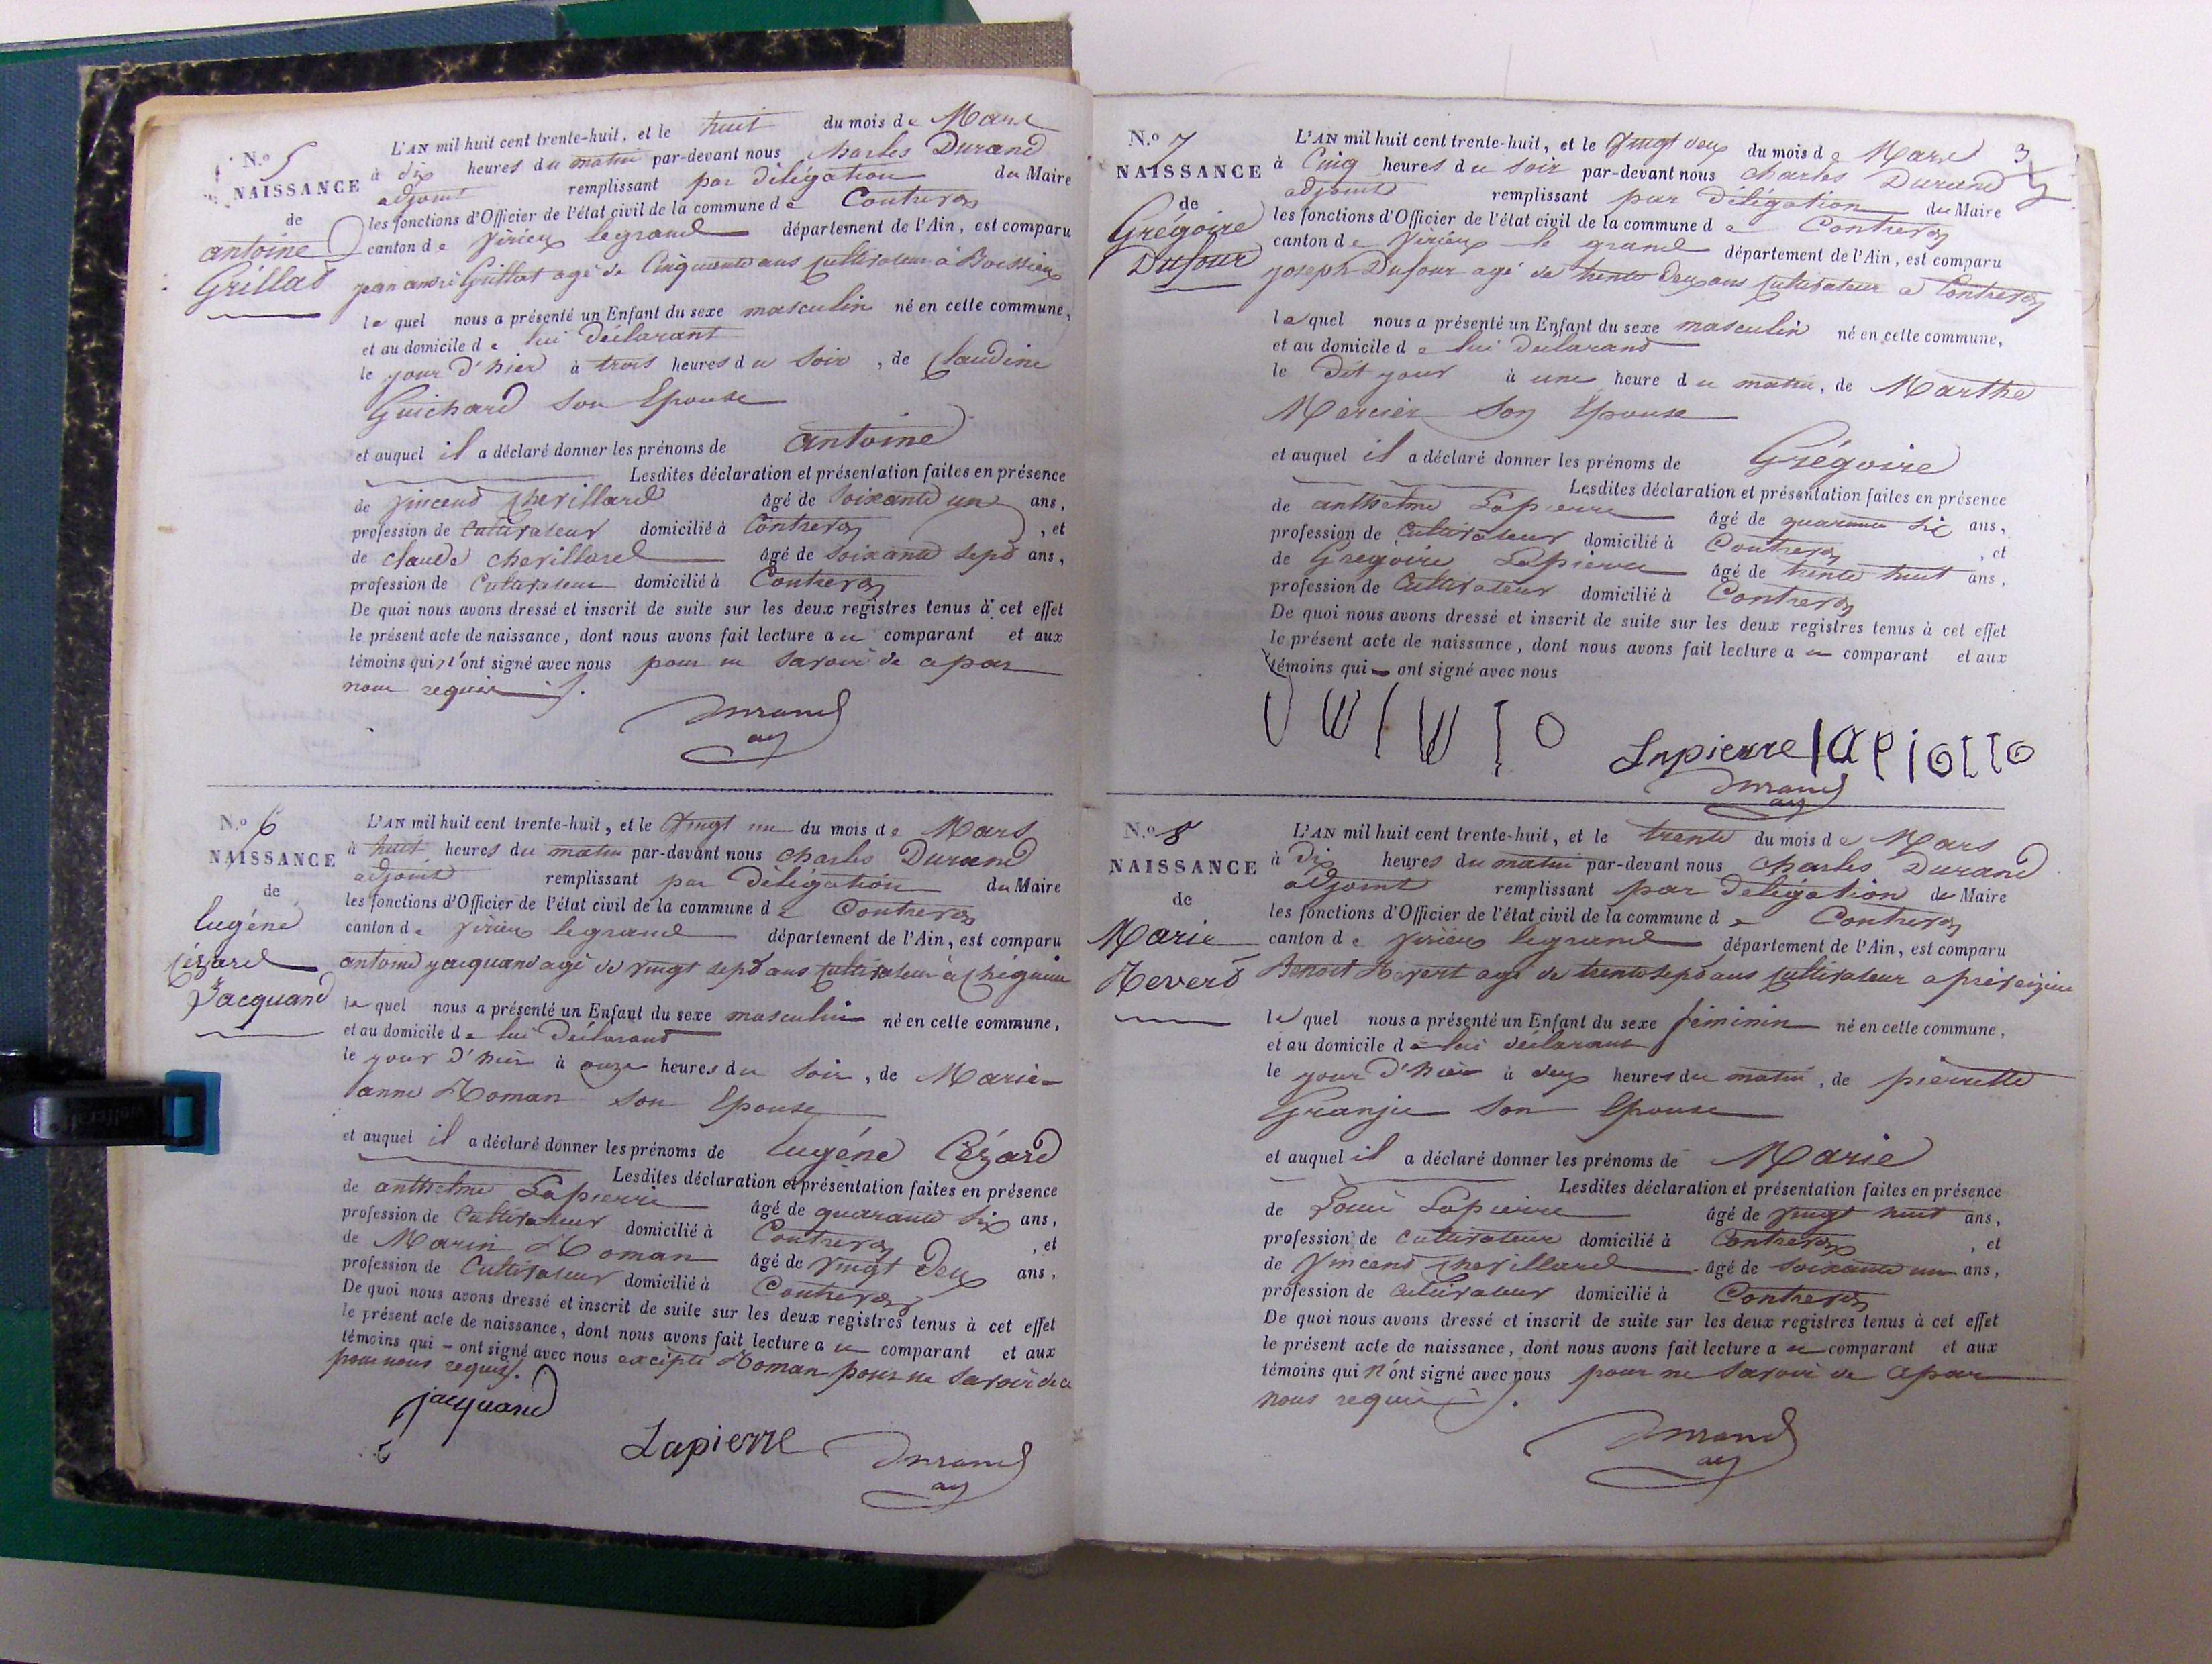 N.o 5
NAISSANCE
de
antoine
Grillat
L'AN mil huit cent trente-huit, et le huit du mois de Mars
à dix heures du matin par-devant nous charles Durand
adjoint remplissant par délégation du Maire
les fonctions d'Officier de l'état civil de la commune de Contrevoz
canton de virieu legrand département de l'Ain, est comparu
jean andré Grillat agé de Cinquante ans cultivateur à Boissieu
lequel nous a présenté un Enfant du sexe masculin né en cette commune,
et au domicile de lui déclarant
le jour d'hier à trois heures du soir, de Claudine
Guichard son Epouse
et auquel il a déclaré donner les prénoms de antoine
Lesdites déclaration et présentation faites en présence
de vincend cherillard âgé de soixante un ans,
profession de cultivateur domicilié à Contrevoz, et
de claude cherillard âgé de soixante sept ans,
profession de Cultivateur domicilié à Contrevoz
De quoi nous avons dressé et inscrit de suite sur les deux registres tenus à cet effet
le présent acte de naissance, dont nous avons fait lecture au comparant et aux
témoins qui n'ont signé avec nous pour ne savoir de a par
nous requis
Durand
adj
N.o 6
NAISSANCE
de
Eugéne
Cézard
Jacquand
L'AN mil huit cent trente-huit, et le vingt un du mois de Mars
à huit heures du matin par-devant nous charles Durand
adjoint remplissant par délégation du Maire
les fonctions d'Officier de l'état civil de la commune de Contrevoz
canton de virieu legrand département de l'Ain, est comparu
antoine jacquand agé de vingt sept ans cultivateur à
lequel nous a présenté un Enfant du sexe masculin né en cette commune,
et au domicile de lui déclarant
le jour d'hier à onze heures du soir, de Marie-
anne Roman son Epouse
et auquel il a déclaré donner les prénoms de Eugéne Cézard
Lesdites déclaration et présentation faites en présence
de anthelme Lapierre âgé de quarante six ans,
profession de Cultivateur domicilié à Contrevoz, et
de Marin Roman âgé de vingt deux ans,
profession de Cultivateur domicilié à Contrevoz
De quoi nous avons dressé et inscrit de suite sur les deux registres tenus à cet effet
le présent acte de naissance, dont nous avons fait lecture au comparant et aux
témoins qui – ont signé avec nous excepté Roman pour ne savoir de a
par nous requis.
jacquand
Lapierre
Durand
adj
3
N.o 7
NAISSANCE
de
Grégoire
Dufour
L'AN mil huit cent trente-huit, et le vingt deux du mois de Mars
à Cinq heures du soir par-devant nous charles Durand
adjoint remplissant par délégation du Maire
les fonctions d'Officier de l'état civil de la commune de Contrevoz
canton de virieu le grand département de l'Ain, est comparu
joseph Dufour agé de trente deux ans cultivateur a Contrevoz
lequel nous a présenté un Enfant du sexe masculin né en cette commune,
et au domicile de lui déclarant
le dit jour à une heure du matin, de Marthe
Mercier son Epouse
et auquel il a déclaré donner les prénoms de Grégoire
Lesdites déclaration et présentation faites en présence
de anthelme Lapierre âgé de quarante six ans,
profession de Cultivateur domicilié à Contrevoz, et
de Gregoire Lapierre âgé de trente huit ans,
profession de Cultivateur domicilié à Contrevoz
De quoi nous avons dressé et inscrit de suite sur les deux registres tenus à cet effet
le présent acte de naissance, dont nous avons fait lecture au comparant et aux
témoins qui – ont signé avec nous
Lapierre
Durand
adj
N.o 8
NAISSANCE
de
Marie
Revert
L'AN mil huit cent trente-huit, et le trente du mois de Mars
à dix heures du matin par-devant nous charles Durand
adjoint remplissant par delégation du Maire
les fonctions d'Officier de l'état civil de la commune de Contrevoz
canton de virieu legrand département de l'Ain, est comparu
Benoit Revert agé de trente sept ans cultivateur a
lequel nous a présenté un Enfant du sexe féminin né en cette commune,
et au domicile de lui déclarant
le jour d'hier à deux heures du matin, de pierrette
Granjie son Epouse
et auquel il a déclaré donner les prénoms de Marie
Lesdites déclaration et présentation faites en présence
de Loui Lapierre âgé de vingt huit ans,
profession de cultivateur domicilié à Contrevoz, et
de vincend cherillard âgé de soixante un ans,
profession de cultivateur domicilié à Contrevoz
De quoi nous avons dressé et inscrit de suite sur les deux registres tenus à cet effet
le présent acte de naissance, dont nous avons fait lecture au comparant et aux
témoins qui n'ont signé avec nous pour ne savoir de a par
nous requis.
Durand
adj